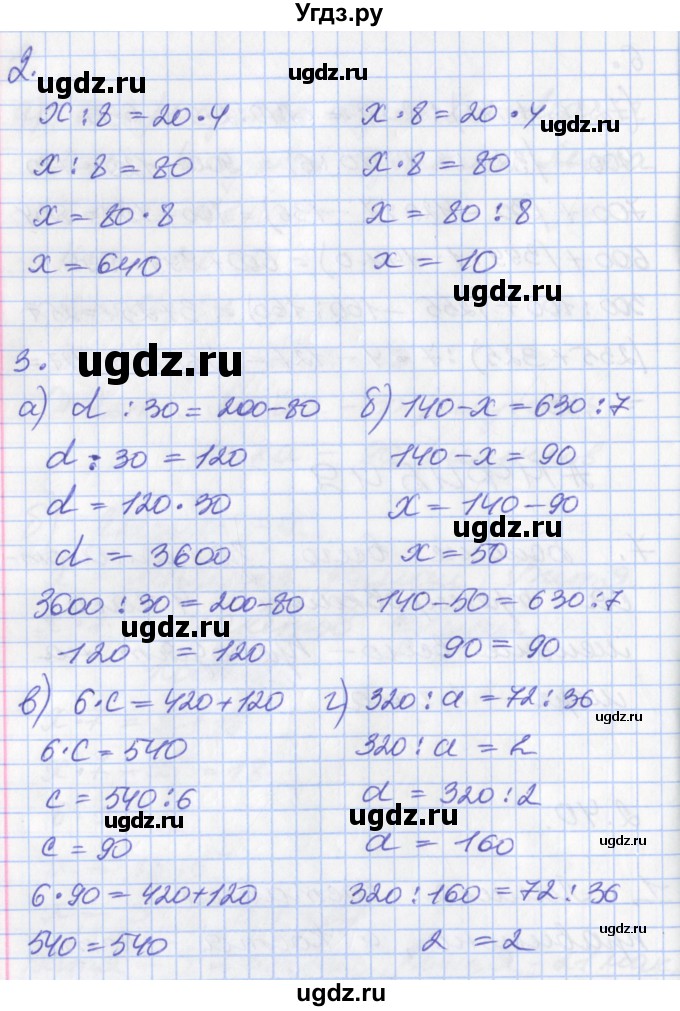 Угдз.ру
2.
ugdz.ru
x : 8 = 20 · 4
x · 8 = 20 · 4
ugdz.ru
x : 8 = 80
x · 8 = 80
x = 80 · 8
x = 80 : 8
x = 640
x = 10
ugdz.ru
3.
ugdz.ru
а) d : 30 = 200 - 80
б) 140 - x = 630 : 7
d : 30 = 120
140 - x = 90
d = 120 · 30
x = 140 - 90
ugdz.ru
d = 3600
x = 50
3600 : 30 = 200 - 80
140 - 50 = 630 : 7
ugdz.ru
120 = 120
90 = 90
в) 6 · c = 420 + 120
г) 320 : a = 72 : 36
ugdz.ru
6 · c = 540
320 : a = 2
c = 540 : 6
a = 320 : 2
ugdz.ru
ugdz.ru
c = 90
a = 160
ugdz.ru
6 · 90 = 420 + 120
320 : 160 = 72 : 36
540 = 540
2 = 2
ugdz.ru
ugdz.ru